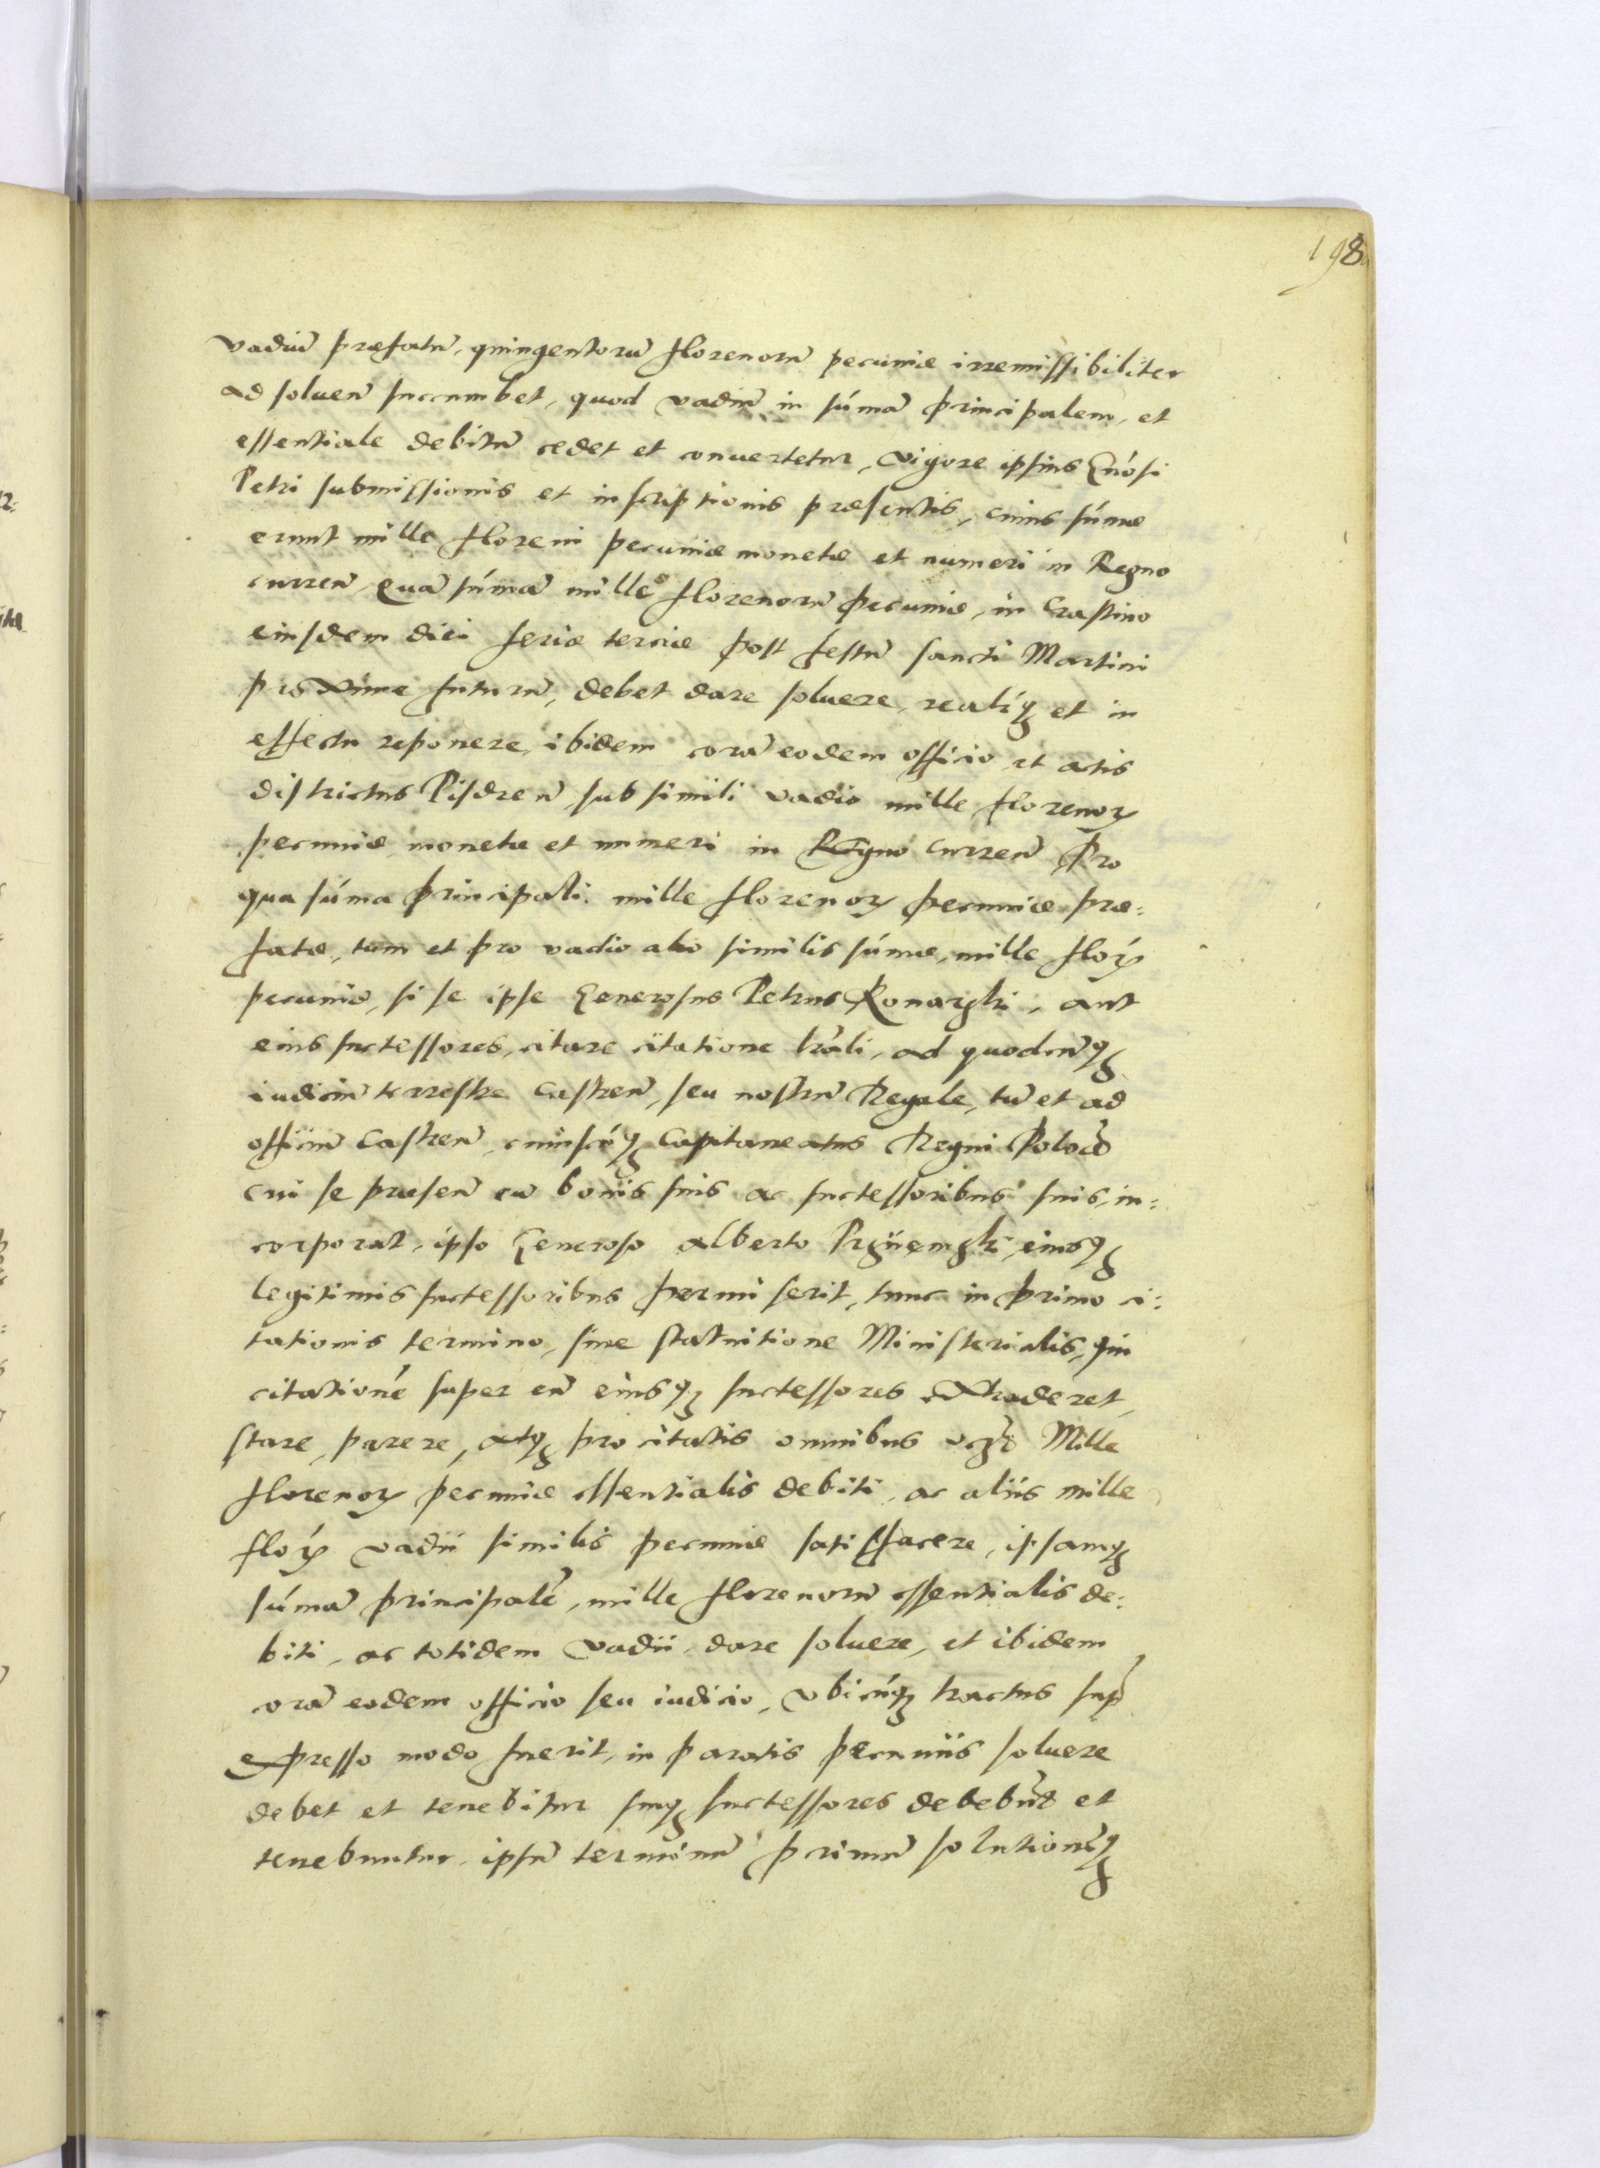 198
vadiũ præfatũ, quingentorũ florenorũ pecuniæ irremissibiliter
ad soluen̄ succumbet, quod vadiũ in sũmã principalem, et
essentiale debitũ cedet et conuertetur, vigore ipsius Gñosi
Petri submissionis et inscriptionis præsentis, cuius sũmæ
erunt mille floreni pecuniæ monetæ et numeri in Regno
curren̄, Quã sũmã mille florenorũ pecuniæ, in Crastino
eiusdem diei feriæ terciæ post festũ sancti Martini
proxime futurũ, debet dare soluere, realitꝫ et in
effectu reponere, ibidem corã eodem officio et actis
districtus Pisdren̄, sub simili vadio mille florenoꝝ
pecuniæ monetæ et numeri in Regno curren̄ Pro
qua sũma principali mille florenoꝝ pecuniæ præ:
fatæ, tum et pro vadio alio similis sũmæ, mille floꝝ
pecuniæ, si se ipse Generosus Petrus Konarski, aut
eius successores, citare citatione l̃rali, ad quodcũqꝫ
iudiciũ terrestre Castren̄, seu nostrũ Regale, tũ et ad
officiũ Castren̄, cuiuscũqꝫ Capitaneatus Regni Poloñ
cui se præsen̄ cũ bonis suis ac successoribus suis, in:
corporat, ipso Generoso Alberto eiusqꝫ
legitimis successoribus permiserit, tunc in primo ci:
tationis termino, sine statuitione Ministerialis, qui
citationē super eũ eiusqꝫ successores extraderet,
stare, parere, atqꝫ pro citatis omnibus Mille
florenoꝝ pecuniæ essentialis debiti, ac aliis mille
floꝝ vadii similis pecuniæ satisfacere, ipsamqꝫ
sũmã principalē, mille florenorũ essentialis de:
biti, ac totidem vadii, dare soluere, et ibidem
corã eodem officio seu iudicio, vbicũqꝫ tractus sup̃
expresso modo fuerit, in paratis pecuniis soluere
debet et tenebitur suiqꝫ successores debebũt et
tenebuntur, ipsũ terminũ primũ solutionẽqꝫ